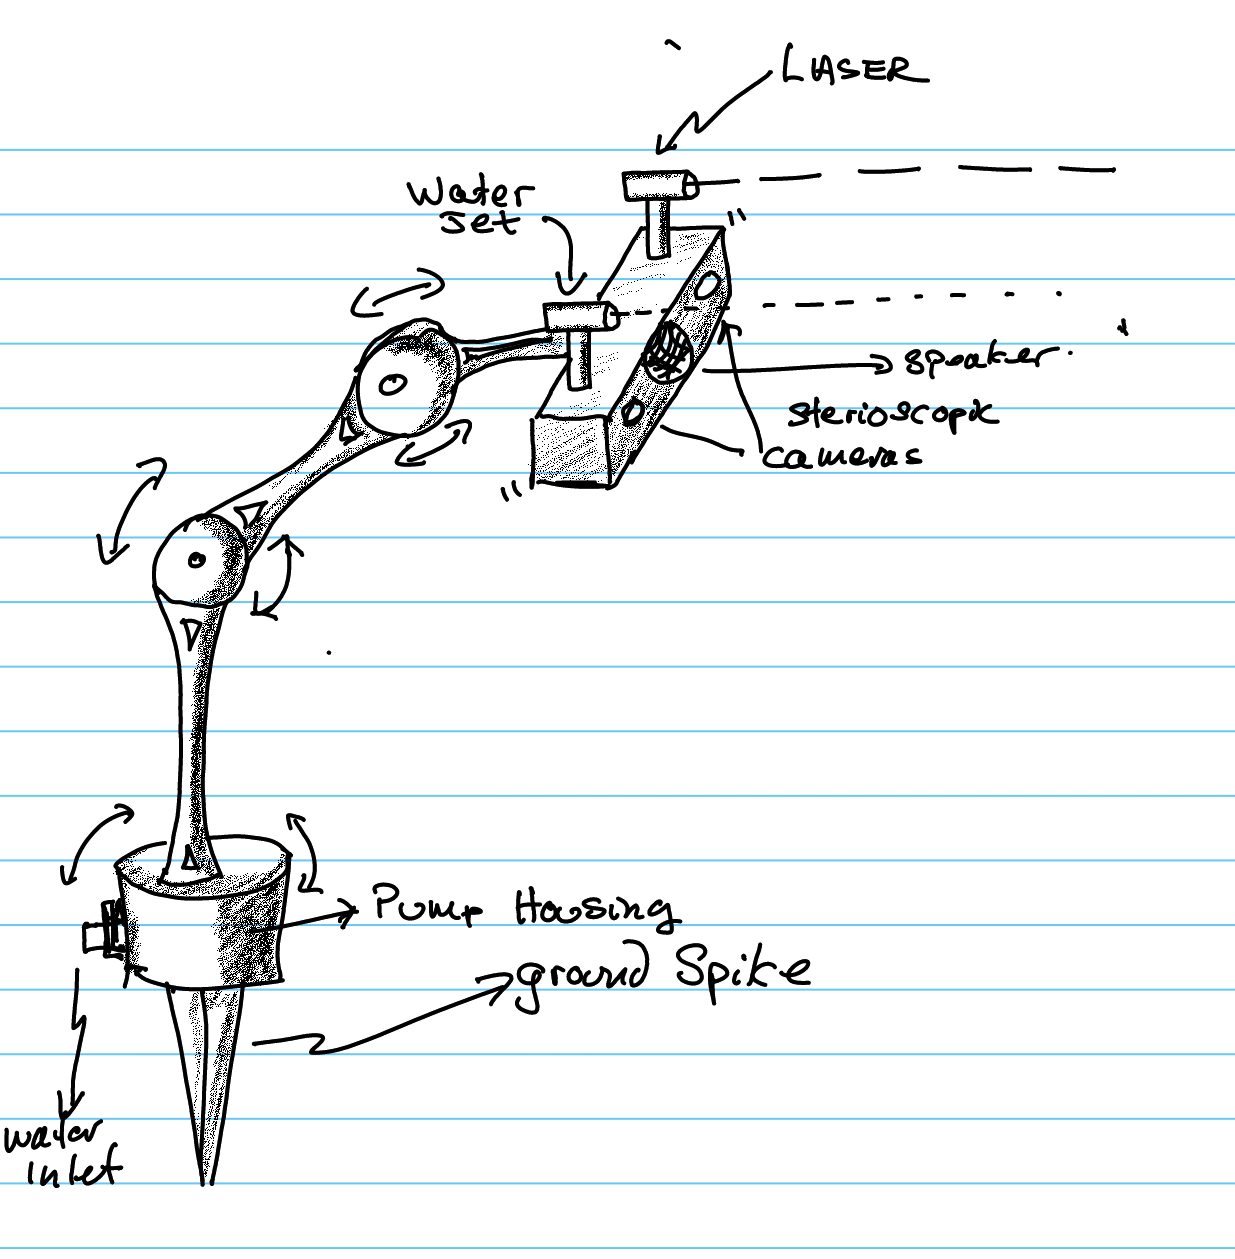 LASER
Water
Jet
speaker.
sterioscopic
cameras
Pump Housing
ground Spike
water
inlet